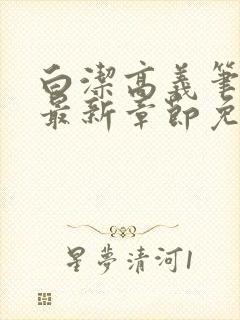 白潔高義筆
最新章節免
星夢清河1